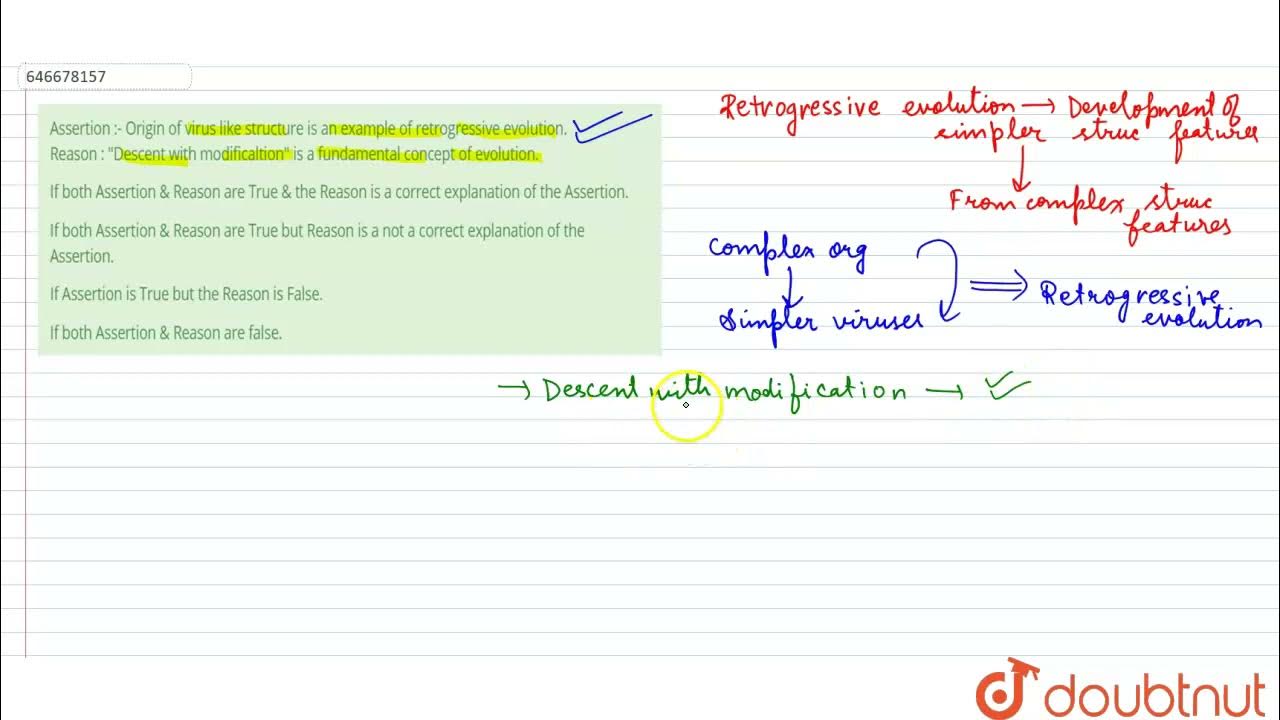 646678157
Assertion :- Origin of virus like structure is an example of retrogressive evolution.
Reason : "Descent with modificaltion" is a fundamental concept of evolution.
If both Assertion & Reason are True & the Reason is a correct explanation of the Assertion.
If both Assertion & Reason are True but Reason is a not a correct explanation of the
Assertion.
If Assertion is True but the Reason is False.
If both Assertion & Reason are false.
Retrogressive evolution → Development of
simpler struc features
From complex struc
features
Complex org
Simpler viruses
⇒ Retrogressive
evolution
→ Descent with modification →
doubtnut